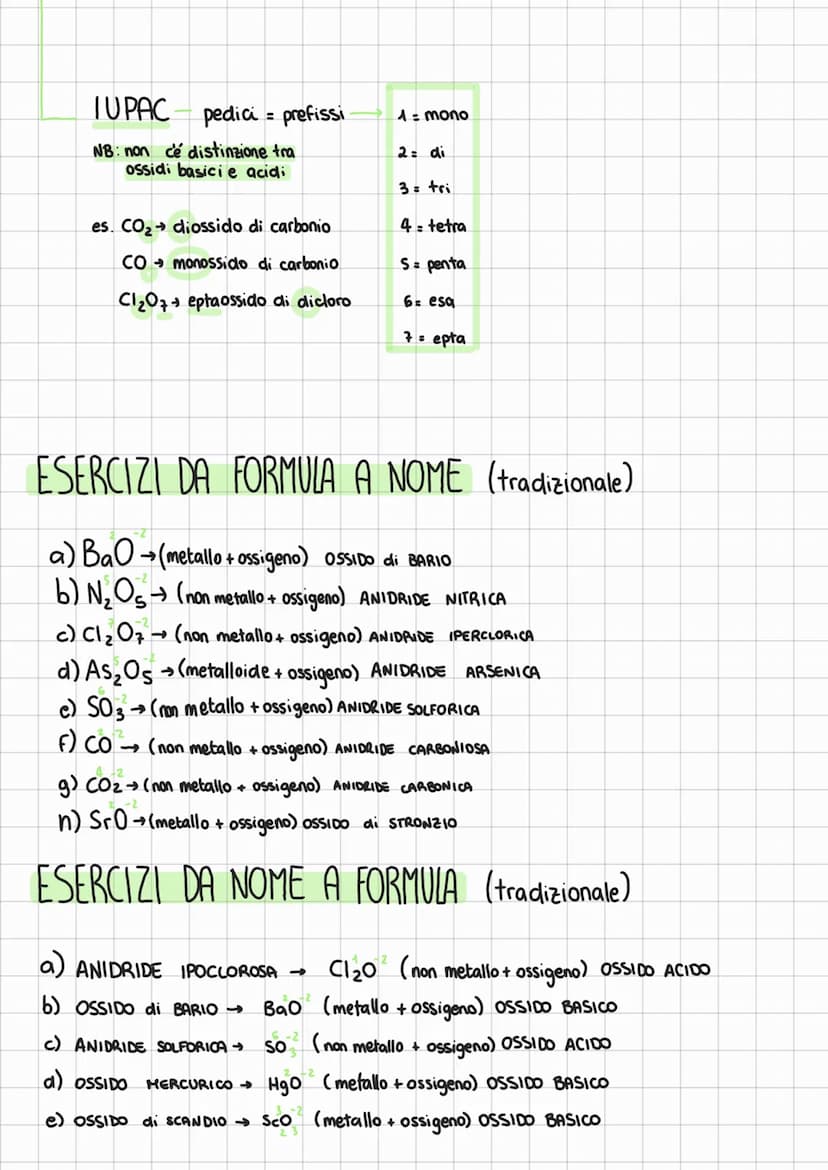 IUPAC — pedici = prefissi → 1 = mono
NB: non c'é distinzione tra
ossidi basici e acidi
2 = di
3 = tri
es. CO₂ → diossido di carbonio
4 = tetra
CO → monossido di carbonio
5 = penta
Cl₂O₇ → eptaossido di dicloro
6 = esa
7 = epta
ESERCIZI DA FORMULA A NOME (tradizionale)
a) Ba²O⁻² → (metallo + ossigeno) OSSIDO di BARIO
b) N₂⁵O₅⁻² → (non metallo + ossigeno) ANIDRIDE NITRICA
c) Cl₂⁷O₇⁻² → (non metallo + ossigeno) ANIDRIDE IPERCLORICA
d) As₂⁵O₅⁻² → (metalloide + ossigeno) ANIDRIDE ARSENICA
e) S⁶O₃⁻² → (non metallo + ossigeno) ANIDRIDE SOLFORICA
f) C²O⁻² → (non metallo + ossigeno) ANIDRIDE CARBONIOSA
g) C⁴O₂⁻² → (non metallo + ossigeno) ANIDRIDE CARBONICA
n) Sr²O⁻² → (metallo + ossigeno) OSSIDO di STRONZIO
ESERCIZI DA NOME A FORMULA (tradizionale)
a) ANIDRIDE IPOCLOROSA → Cl₂¹O⁻² (non metallo + ossigeno) OSSIDO ACIDO
b) OSSIDO di BARIO → Ba²O⁻² (metallo + ossigeno) OSSIDO BASICO
c) ANIDRIDE SOLFORICA → S⁶O₃⁻² (non metallo + ossigeno) OSSIDO ACIDO
d) OSSIDO MERCURICO → Hg²O⁻² (metallo + ossigeno) OSSIDO BASICO
e) OSSIDO di SCANDIO → Sc₂³O₃⁻² (metallo + ossigeno) OSSIDO BASICO